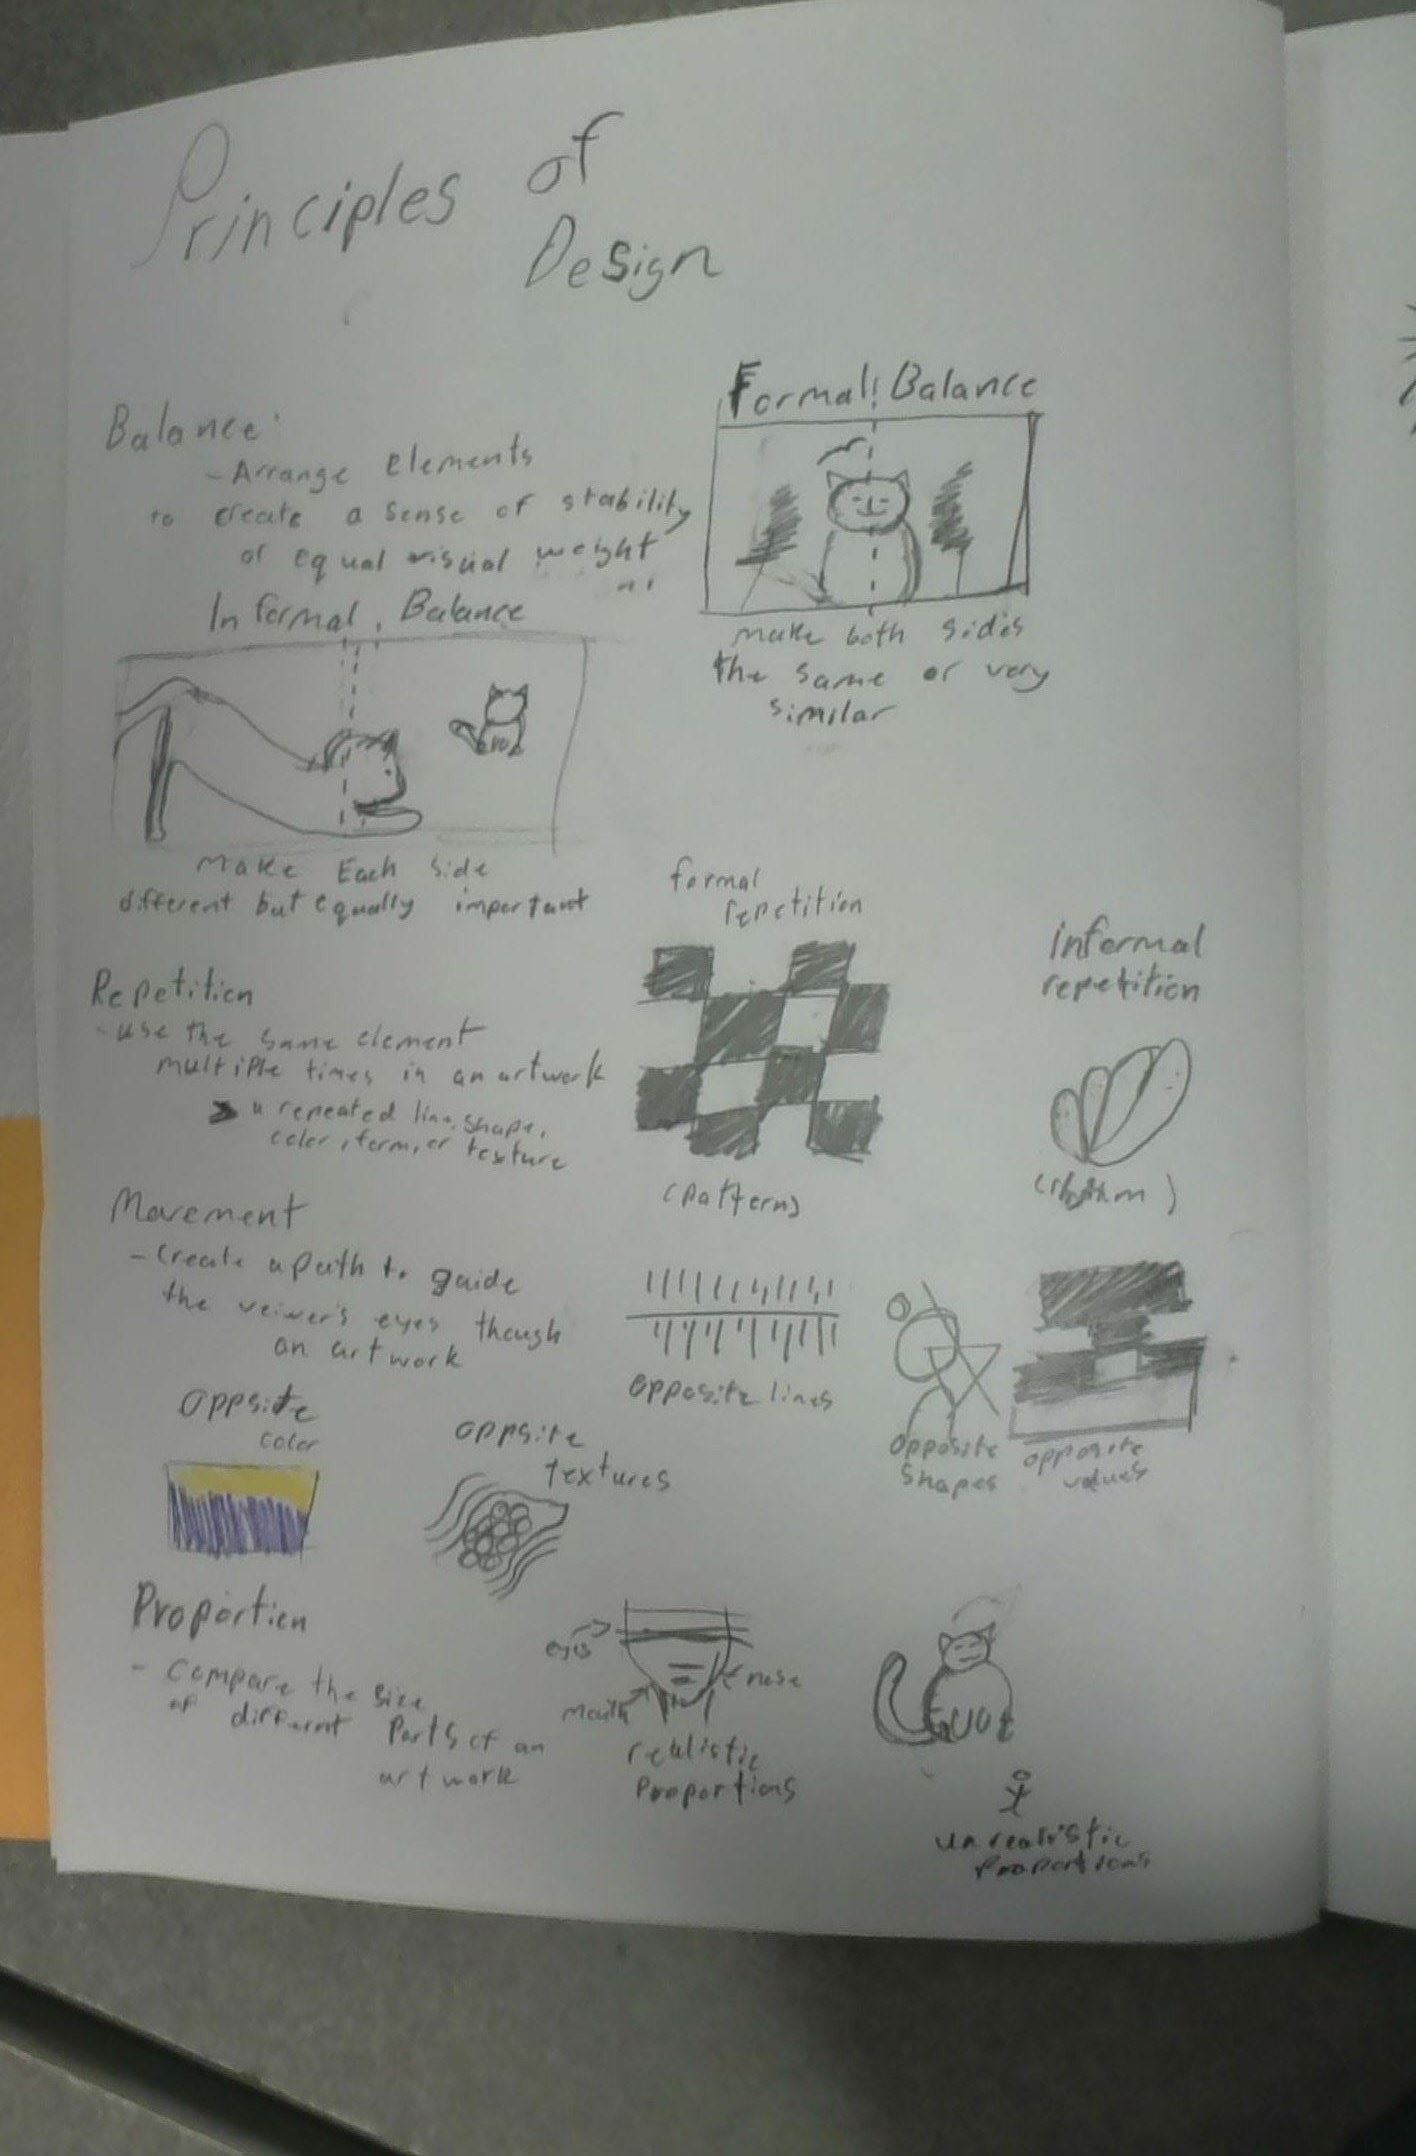 Principles of
Design
Balance:
- Arrange Elements
to create a sense of stability
of equal visual weight
Formal Balance
make both sides
the same or very
similar
Informal Balance
Make Each side
different but equally important
Repetition
- use the same element
multiple times in an artwork
a repeated line, shape,
color, form, or texture
formal
repetition
(pattern)
informal
repetition
(rhythm)
Movement
- Create a path to guide
the veiwer's eyes though
an artwork
opposite lines
opposite
shapes
opposite
values
oppsite
color
oppsite
textures
Proportion
- Compare the size
of different Parts of an
artwork
eyes
nose
mouth
realistic
Proportions
unrealistic
Proportions